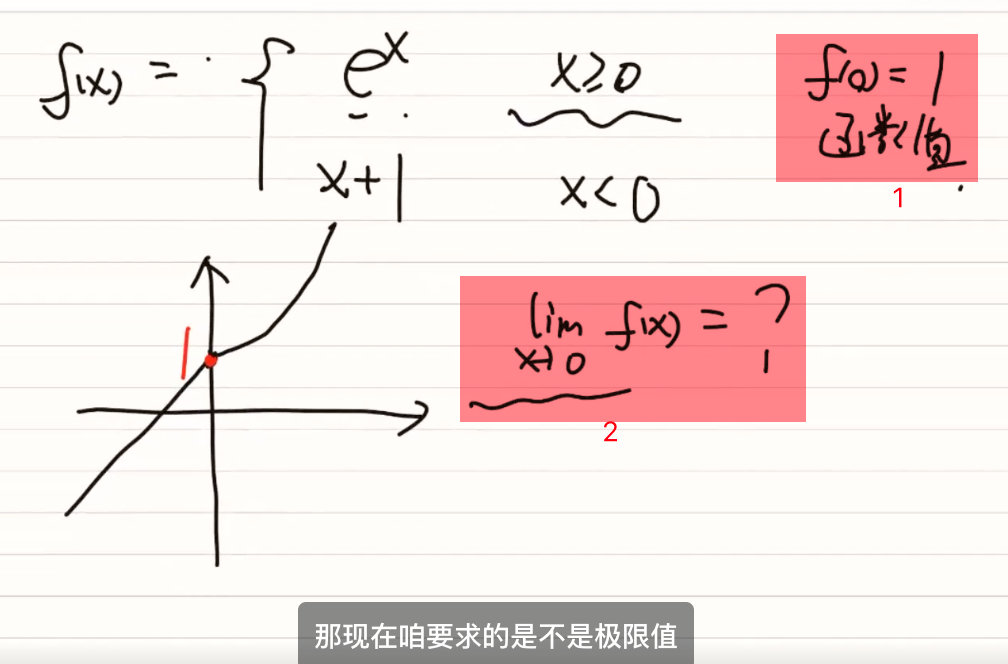 f(x) = { e^x x≥0
x+1 x<0
f(0) = 1
函数值
1
1
lim f(x) = ?
x→0
2
那现在咱要求的是不是极限值